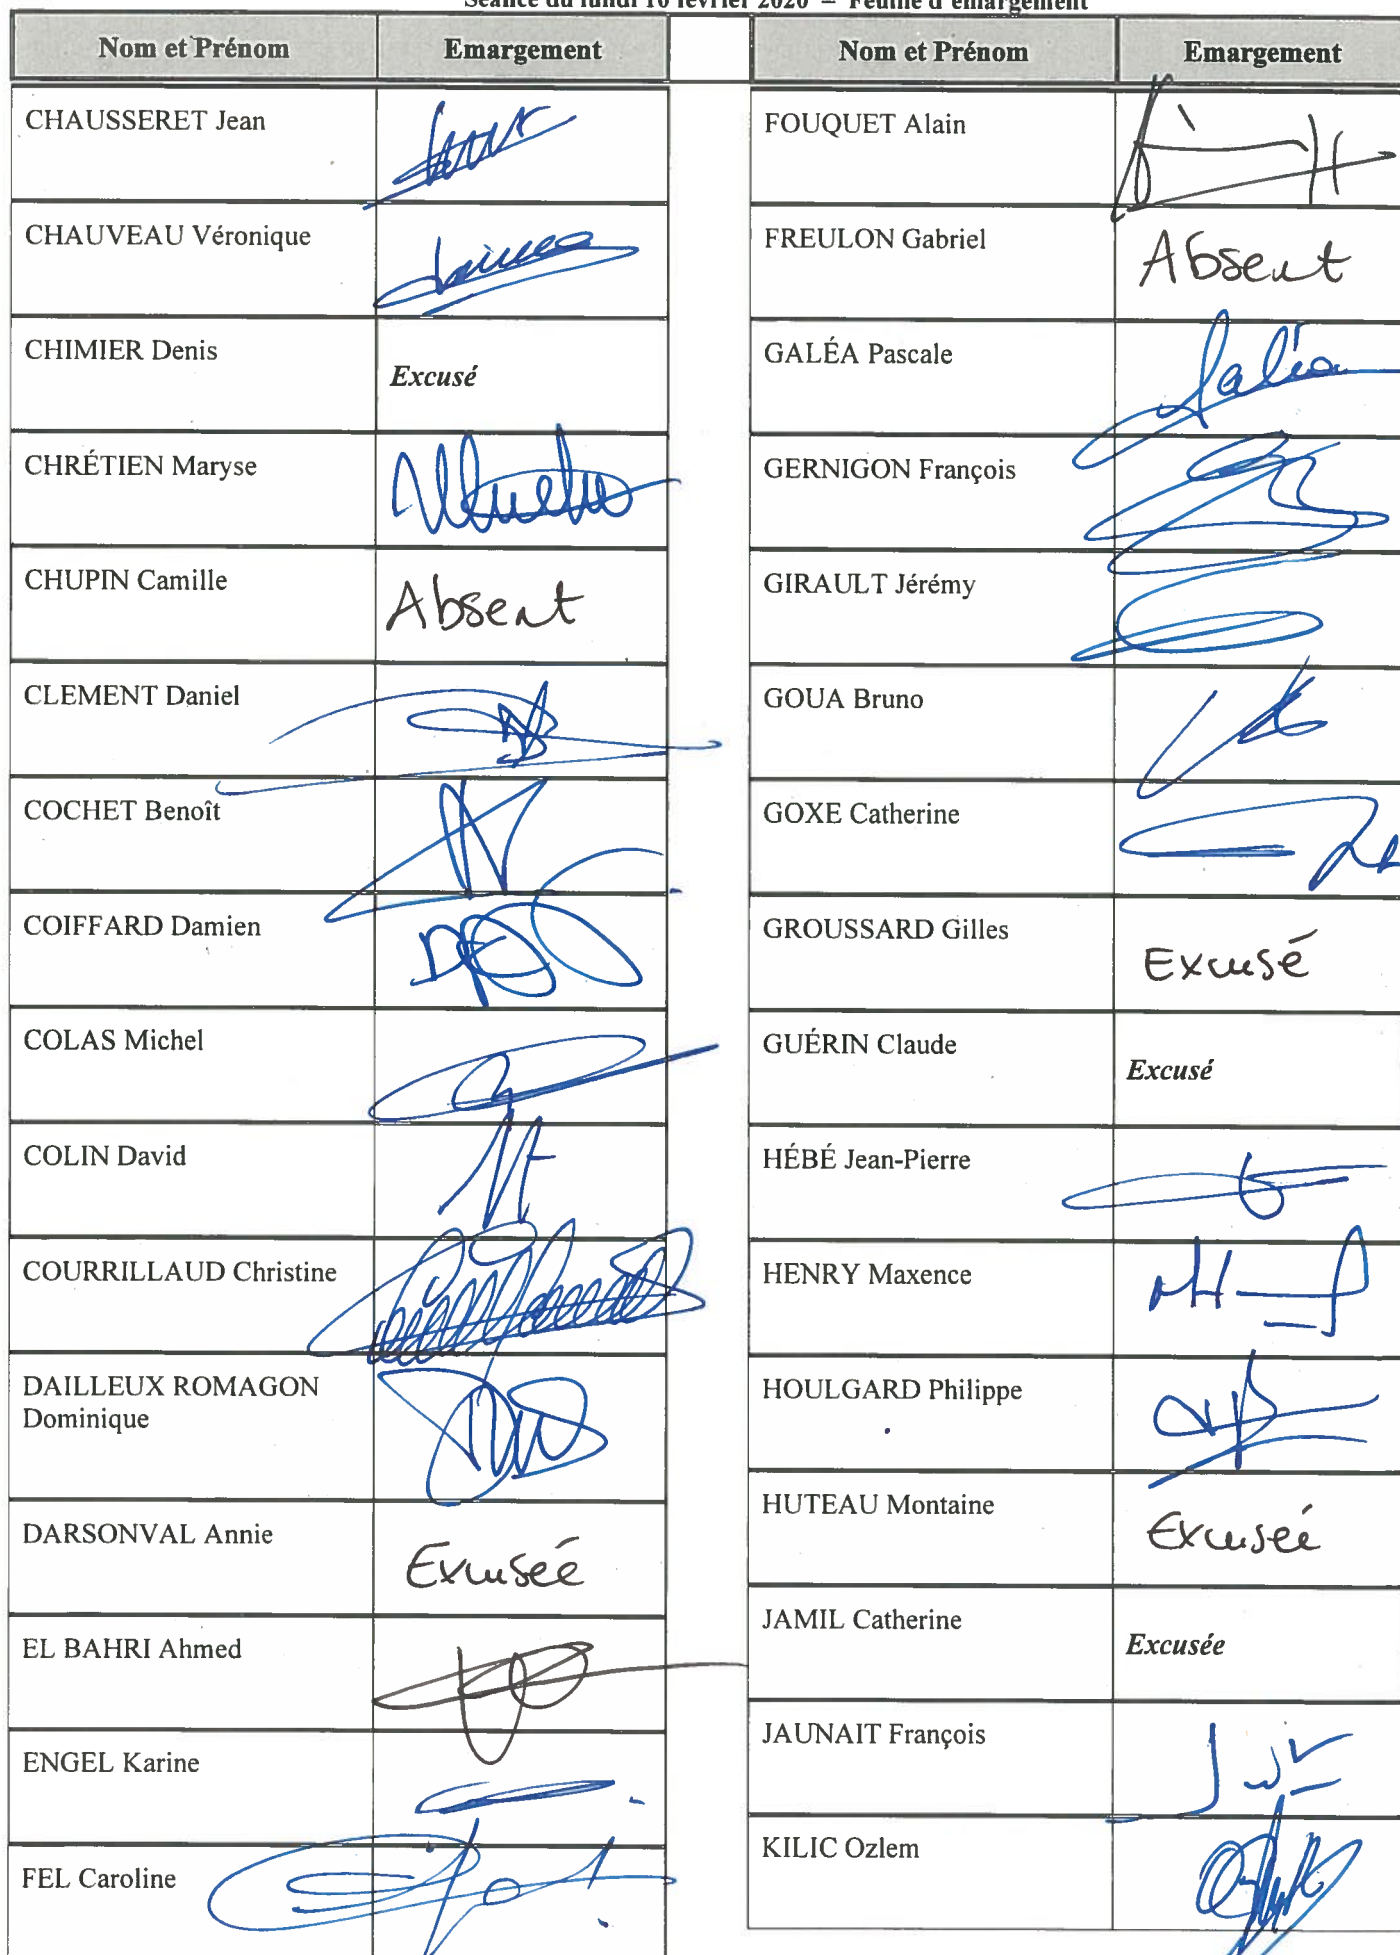 Séance du lundi 10 février 2020 – Feuille d'émargement
Nom et Prénom Emargement Nom et Prénom Emargement
CHAUSSERET Jean
CHAUVEAU Véronique
CHIMIER Denis Excusé
CHRÉTIEN Maryse
CHUPIN Camille Absent
CLEMENT Daniel
COCHET Benoît
COIFFARD Damien
COLAS Michel
COLIN David
COURRILLAUD Christine
DAILLEUX ROMAGON
Dominique
DARSONVAL Annie Excusée
EL BAHRI Ahmed
ENGEL Karine
FEL Caroline
FOUQUET Alain
FREULON Gabriel Absent
GALÉA Pascale Galéa
GERNIGON François
GIRAULT Jérémy
GOUA Bruno
GOXE Catherine
GROUSSARD Gilles Excusé
GUÉRIN Claude Excusé
HÉBÉ Jean-Pierre
HENRY Maxence
HOULGARD Philippe
HUTEAU Montaine Excusée
JAMIL Catherine Excusée
JAUNAIT François
KILIC Ozlem